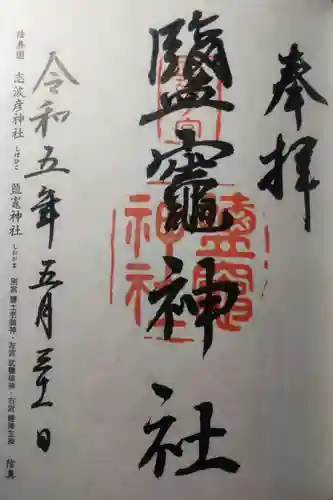 奉拝
鹽竈神社
鹽竈神社
令和五年五月三十一日
陸奥國 志波彦神社 しはひこ 鹽竈神社 しおがま 別宮 鹽土老翁神・左宮 武甕槌神・右宮 經津主神